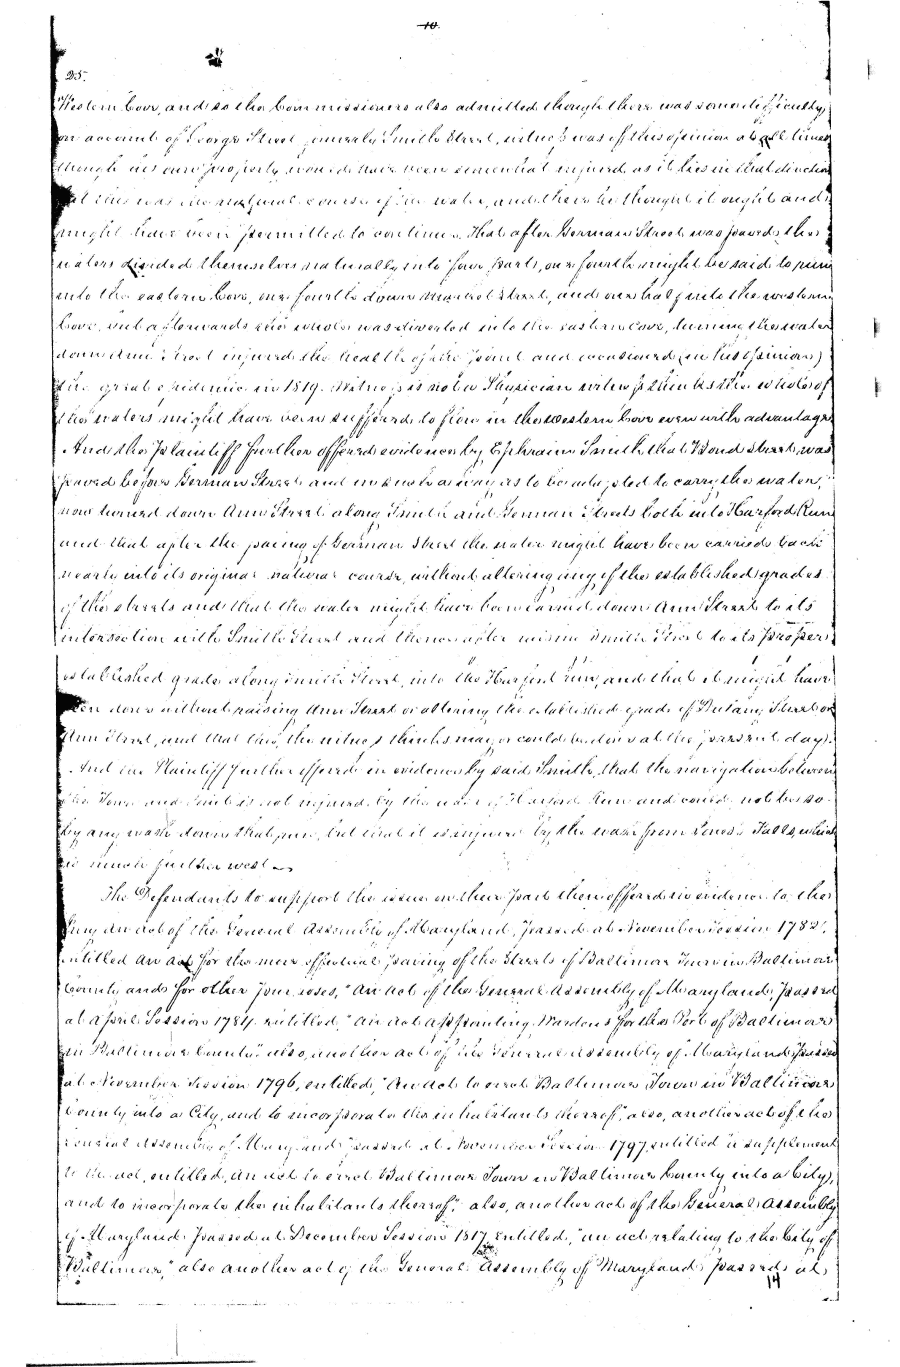 10.
25.
Western Cove, and so the Commissioners also admitted though there was some difficulty
on account of George Street formerly Smith Street, witness was of this opinion at all times
though his own property would have been somewhat injured as it lies in that direction
that this was the natural course of the water, and there he thought it ought and
might have been permitted to continue. That after German Street was paved, the
waters divided themselves naturally into four parts, one fourth might be said to run
into the eastern Cove, one fourth down Market Street, and one half into the western
Cove, but afterwards the whole was diverted into the eastern cove, turning the water
down Ann Street injured the health of the point and occasioned (in his opinion)
the great epidemic in 1819. Witness is not a Physician witness thinks the whole of
the waters might have been suffered to flow in the western Cove even with advantage
And the Plaintiff further offered evidence by Ephraim Smith that Bond Street was
paved before German Street and in such a way as to be adapted to carry the water,
now turned down Ann Street along Smith and German Streets both into Harford Run
and that after the paving of German Street the water might have been carried back
nearly into its original natural course, without altering any of the established grades
of the streets and that the water might have been carried down Ann Street to its
intersection with Smith Street and thence after raising Smith Street to its proper
established grade along Smith Street, into the Harford run, and that it might have
been done without raising Ann Street or altering the established grade of Street or
Ann Street, and that this, the witness thinks may or could be done at the present day.
And the Plaintiff further offered in evidence by said Smith, that the navigation between
the Town and Point is not injured by the wash of Harford Run and could not be so
by any wash down that run, but that it is injured by the wash from Jones's Falls, which
is much further west
The Defendants to support the issue on their part then offered in evidence to the
Jury an act of the General Assembly of Maryland, passed at November Session 1782,
entitled an act for the more effectual paving of the Streets of Baltimore Town in Baltimore
County and for other purposes," an act of the General Assembly of Maryland, passed
at April Session 1784 entitled, "an act appointing Wardens for the Port of Baltimore
in Baltimore County" also, another act of the General Assembly of Maryland passed
at November Session 1796, entitled, "An act to erect Baltimore Town in Baltimore
County into a City, and to incorporate the inhabitants thereof," also, another act of the
General Assembly of Maryland passed at November Session 1797, entitled a supplement
to the act, entitled, an act to erect Baltimore Town in Baltimore County into a City,
and to incorporate the inhabitants thereof," also, another act of the General Assembly
of Maryland passed at December Session 1817, entitled, "an act relating to the City of
Baltimore," also another act of the General Assembly of Maryland, passed at
14